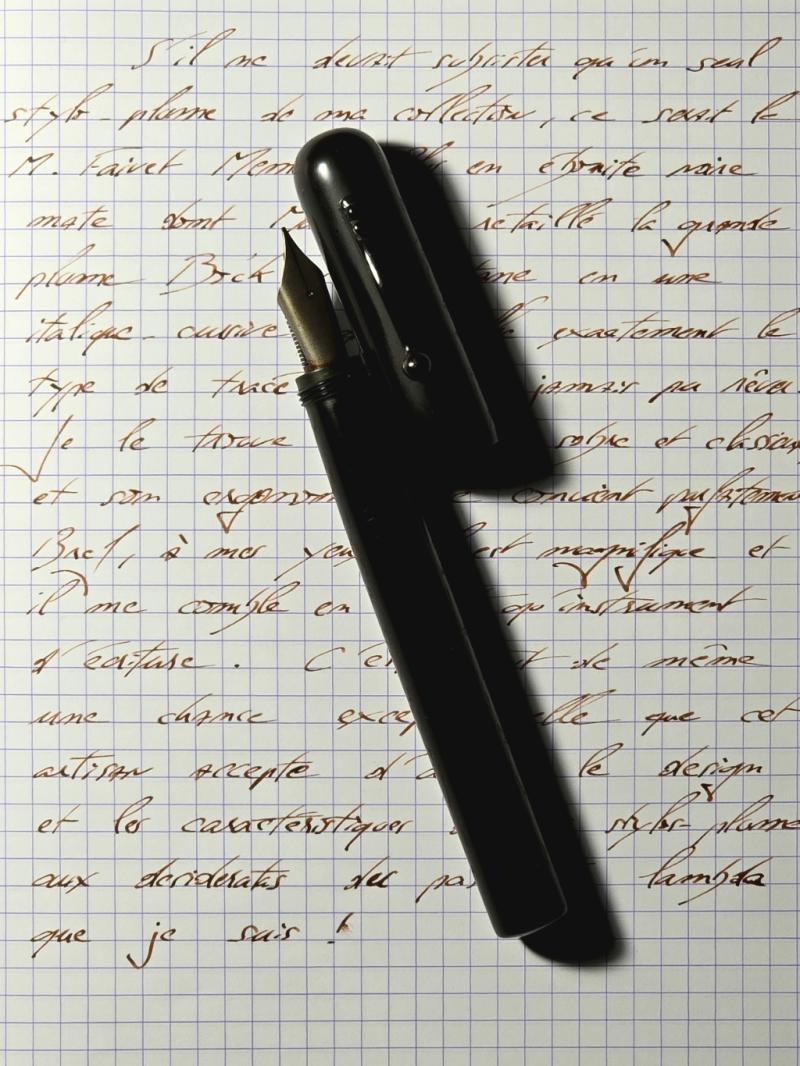 S'il me devait subsister qu'un seul
stylo-plume de ma collection, ce serait le
M. Faivet en ébonite noire
mate dont retaillé la grande
plume Bock en une
italique-cursive exactement le
type de tracé jamais pu rêver.
Je le trouve sobre et
et son convient
Bref, à mes yeux est magnifique et
il me comble en qu'instrument
d'écriture. de même
une chance que cet
artisan accepte le design
et les caractéristiques stylos-plume
aux desideratas des lambda
que je suis !